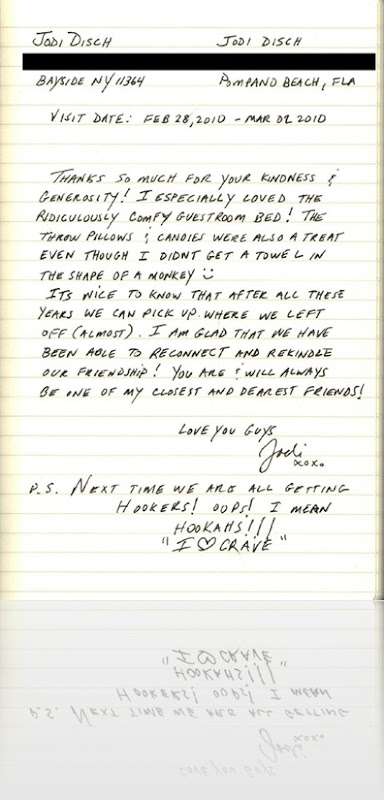 JODI DISCH JODI DISCH
BAYSIDE NY 11364 POMPANO BEACH, FLA
VISIT DATE: FEB 28, 2010 - MAR 02 2010
THANKS SO MUCH FOR YOUR KINDNESS &
GENEROSITY! I ESPECIALLY LOVED THE
RIDICULOUSLY COMFY GUESTROOM BED! THE
THROW PILLOWS & CANDIES WERE ALSO A TREAT
EVEN THOUGH I DIDNT GET A TOWEL IN
THE SHAPE OF A MONKEY
ITS NICE TO KNOW THAT AFTER ALL THESE
YEARS WE CAN PICK UP WHERE WE LEFT
OFF (ALMOST). I AM GLAD THAT WE HAVE
BEEN ABLE TO RECONNECT AND REKINDLE
OUR FRIENDSHIP! YOU ARE & WILL ALWAYS
BE ONE OF MY CLOSEST AND DEAREST FRIENDS!
LOVE YOU GUYS
Jodi
xoxo
P.S. NEXT TIME WE ARE ALL GETTING
HOOKERS! OOPS! I MEAN
HOOKAHS!!!
"I ♡ CRAVE"